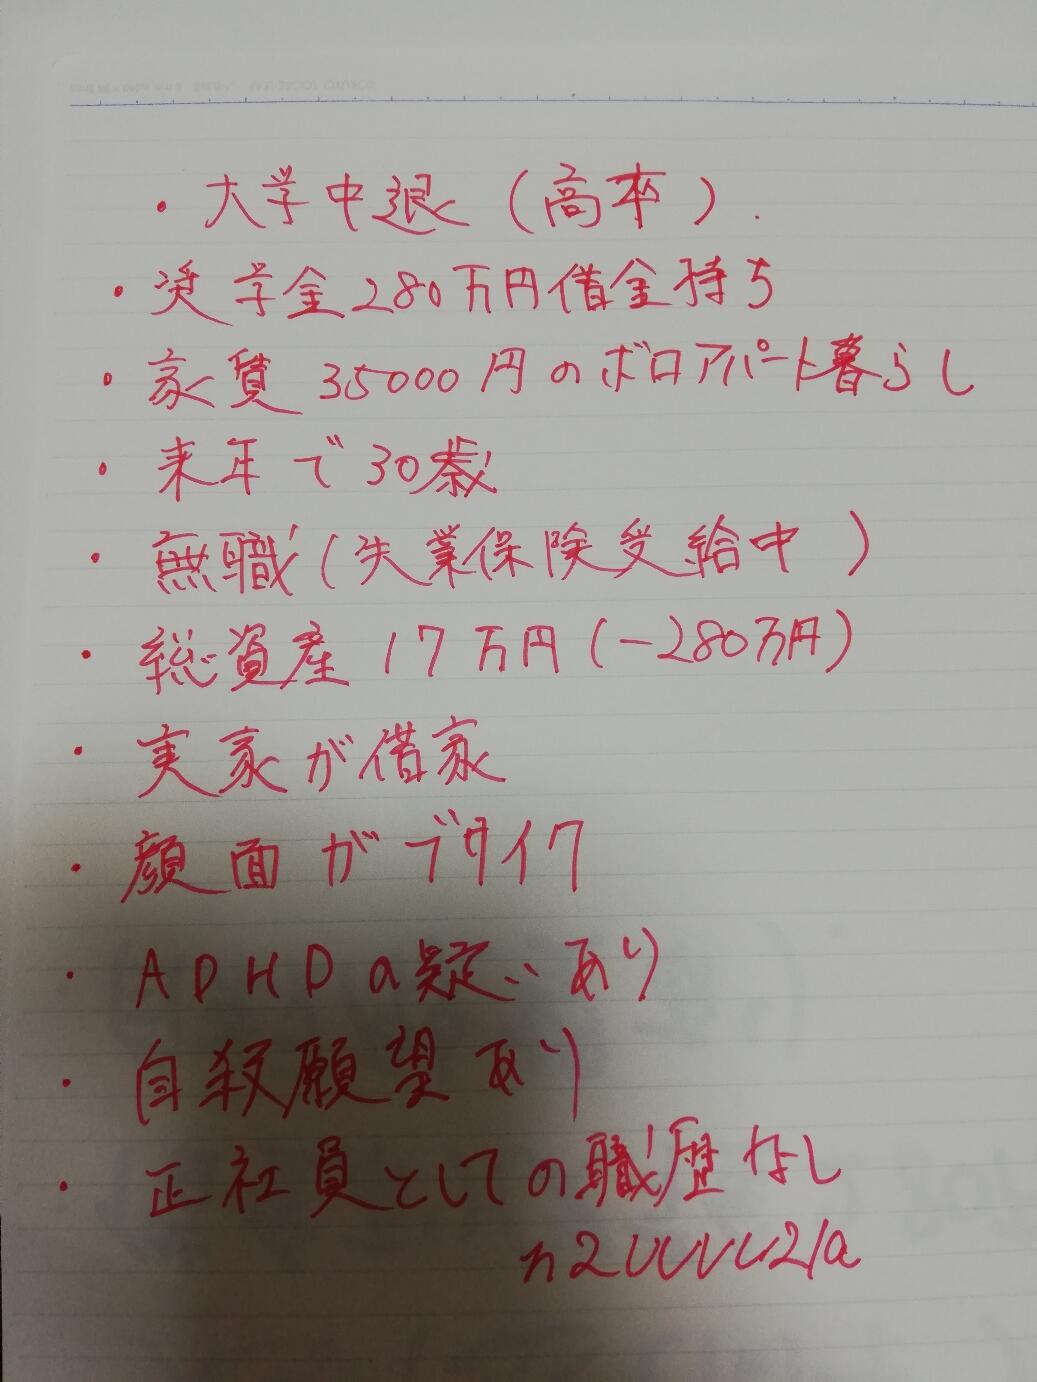 ・大学中退(高卒).
・奨学金280万円借金持ち
・家賃35000円のボロアパート暮らし
・来年で30歳
・無職(失業保険受給中)
・総資産17万円(-280万円)
・実家が借家
・顔面がブサイク
・ADHDの疑いあり
・自殺願望あり
・正社員としての職歴なし